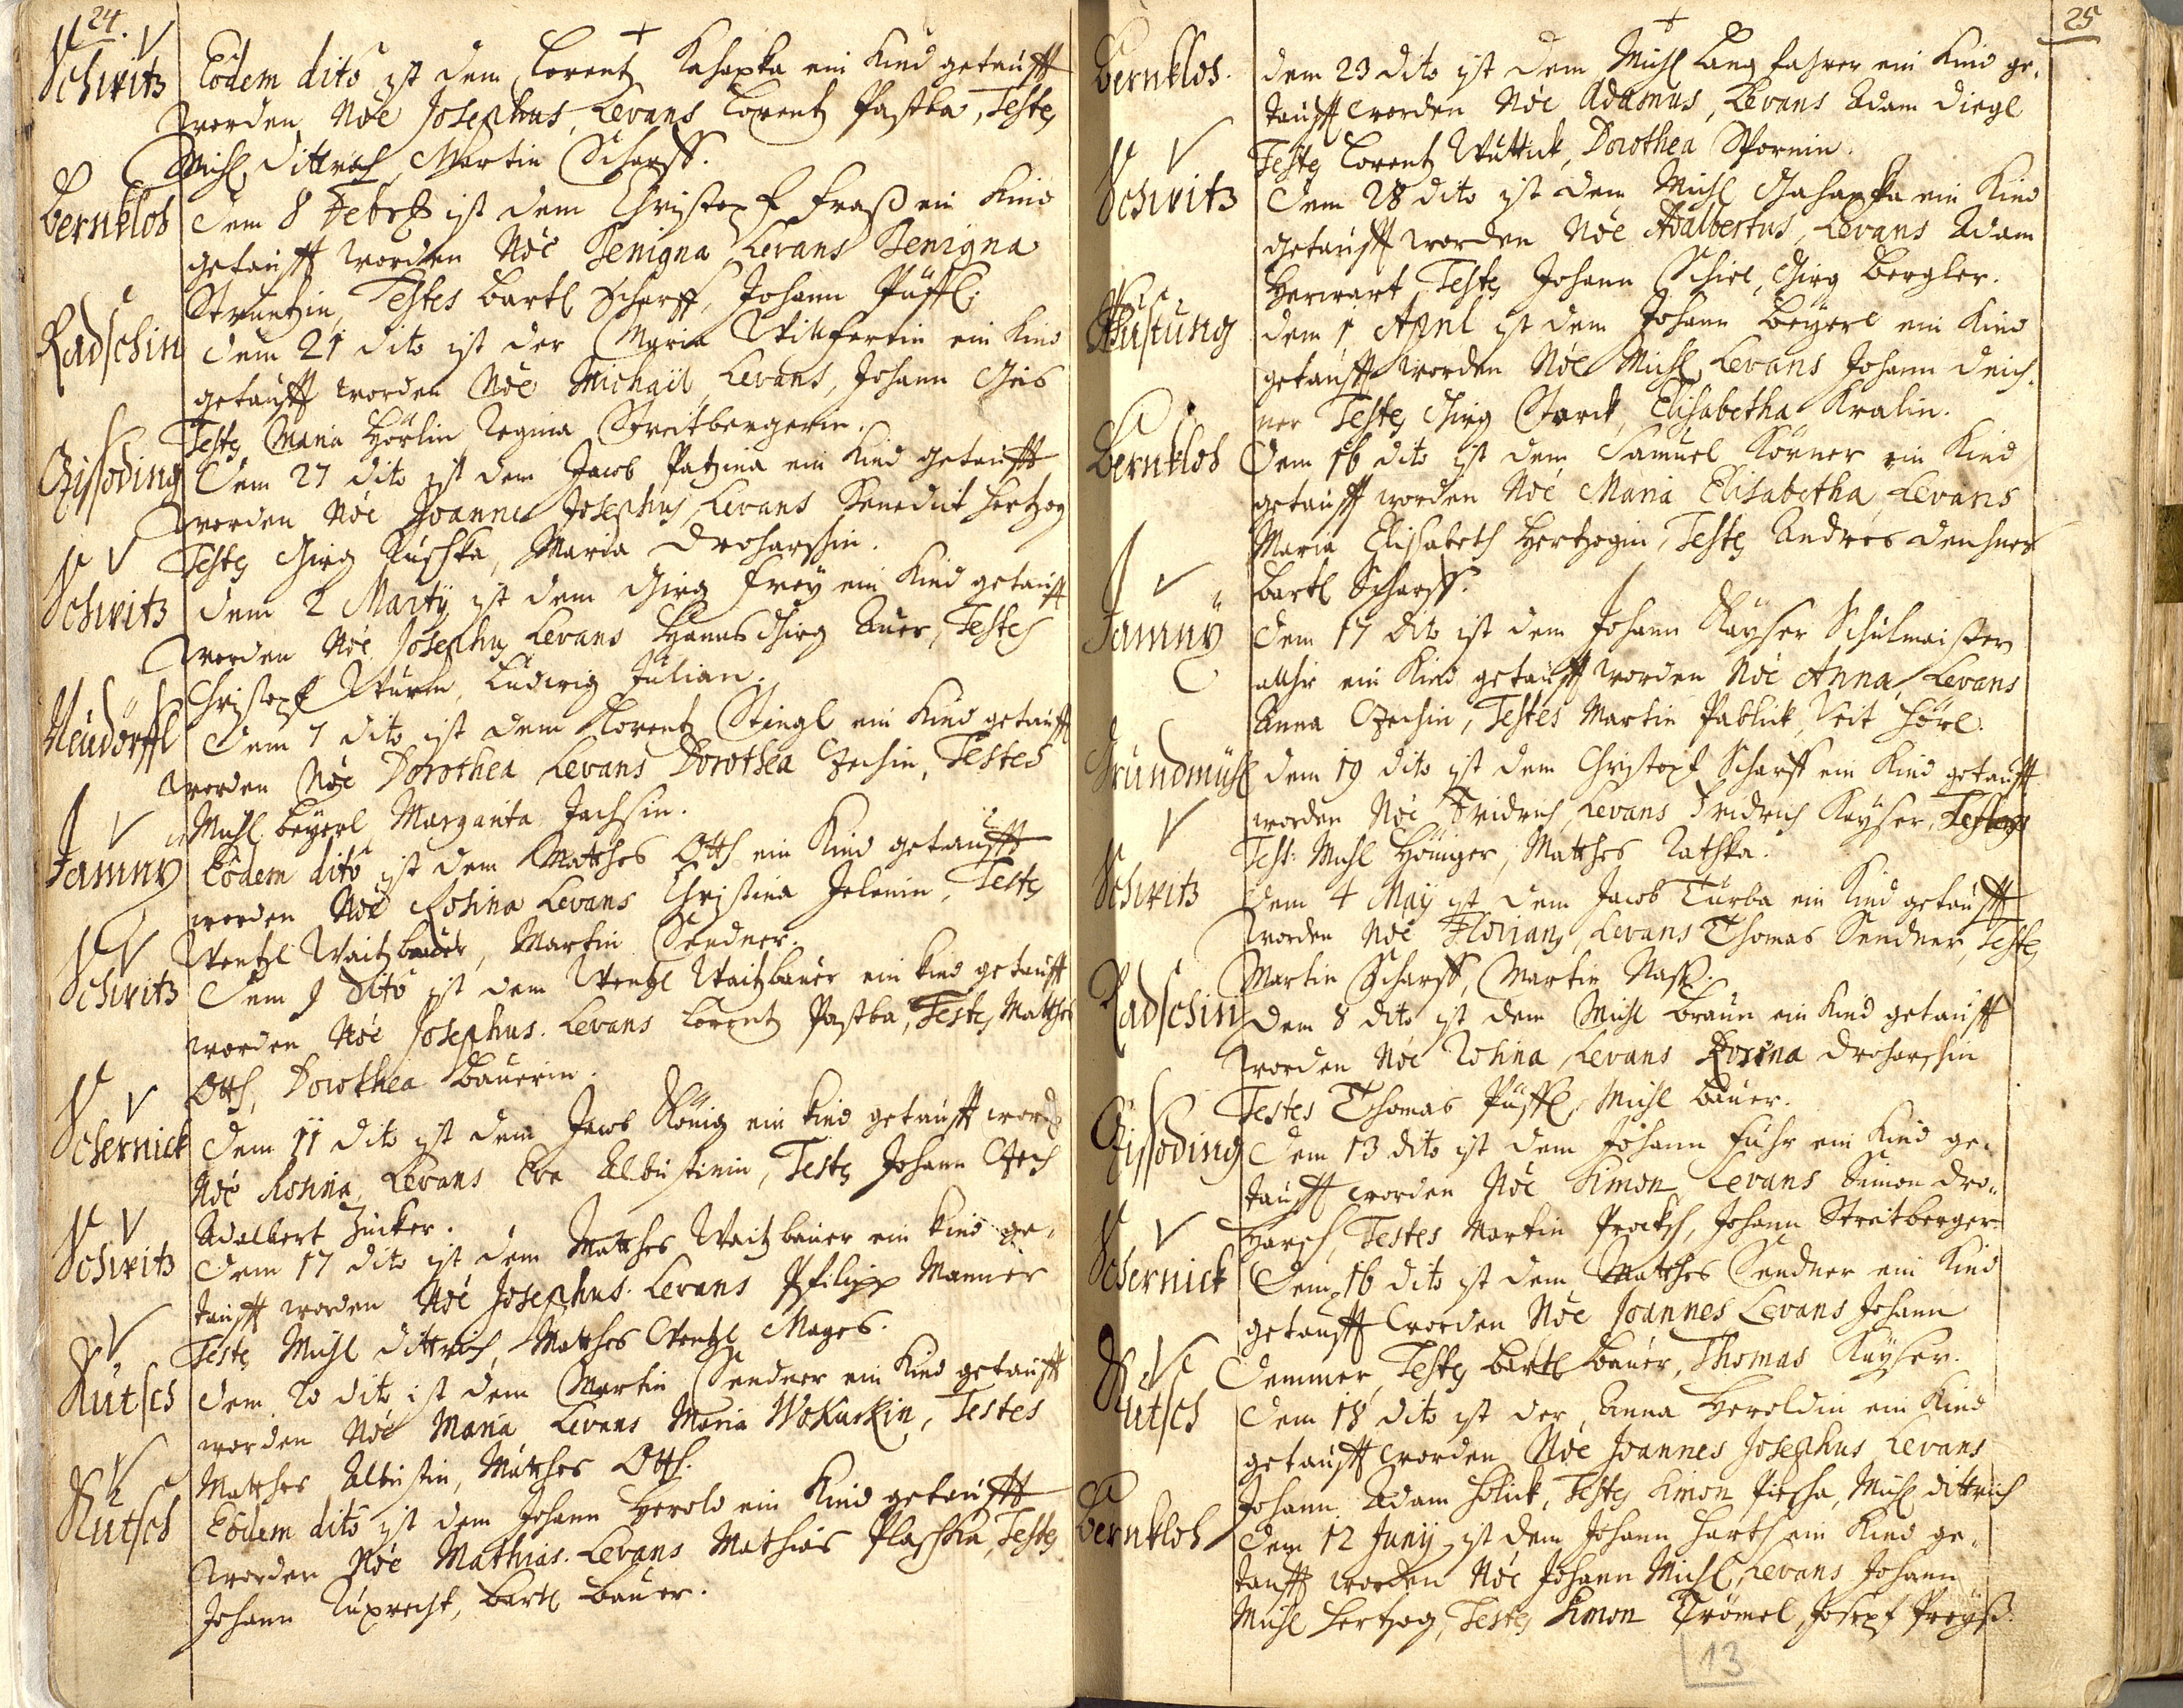 24.
Schwitz Eodem dito ist dem Lorentz Kahapka ein Kind getaufft
worden Noe Josephus, Levans Lorentz Pastka, Testes
Michl Dittrich, Martin Scharff.
Bernklos Dem 8 Febr ist dem Christoph Fraß ein Kind
getaufft worden Noe Benigna Levans Benigna
Struntzin, Testes Bartl Scharff, Johann Püffl.
Radschin dem 21 dito ist der Maria Willfertin ein Kind
getaufft worden Noe Michael, Levans, Johann
Testes Maria Hörlin Regina Streitbergerin.
Czissoding Dem 27 dito ist dem Jacob Patzina ein Kind getaufft
worden Noe Joannes Josephus, Levans Benedict Hertzog
Testes Girg Kuschka, Maria Droharschin.
Schwitz dem 2 Marty ist dem Girg Frey ein Kind getaufft
worden Noe Josephus Levans Hanns Girg Auer, Testes
Christoph Wurm, Ludwig Julian.
Neudörffl Dem 7 dito ist dem Lorentz Stingl ein Kind getaufft
worden Noe Dorothea Levans Dorothea Czechin, Testes
Michl Beyerl Margarita Jachsin.
Jamny Eodem dito ist dem Matthes Otth ein Kind getaufft
worden Noe Rosina Levans Christina Jelenin, Testes
Wentzl Waitzbauer, Martin Sendner.
Schwitz Dem 9 dito ist dem Wentzl Waitzbauer ein Kind getaufft
worden Noe Josephus. Levans Lorentz Pastka, Testes Matthes
Otth, Dorothea Bauerin.
Schernick Dem 11 dito ist dem Jacob König ein Kind getaufft word
Noe Rosina, Levans Eva Albustinin, Testes Johann Czech
Adalbert Zucker.
Schwitz Dem 17 dito ist dem Matthes Waitzbauer ein Kind ge¬
taufft worden Noe Josephus. Levans Philipp Manner
Testes Michl Dittrich, Matthes Wentzl Mages.
Kutsch dem 20 dito ist dem Martin Sendner ein Kind getaufft
worden Noe Maria Levans Maria Wokurkin, Testes
Matthes Albustin, Matthes Otth.
Kutsch Eodem dito ist dem Johann Herold ein Kind getaufft
worden Noe Mathias. Levans Mathias Plaschka, Testes
Johann Ruprecht, Bartl Bauer.
25
Bernklos. dem 23 dito ist dem Michl Langfahrer ein Kind ge¬
taufft worden Noe Adamus, Levans Adam Diegl
Testes Lorentz Wuttick, Dorothea Spornin.
Schwitz Dem 28 dito ist dem Michl Gahapka ein Kind
getaufft worden Noe Adalbertus, Levans Adam
Herwart, Testes Johann Schiel, Girg Bergler.
Wustung dem 1 April ist dem Johann Beyerl ein Kind
getaufft worden Noe Michl, Levans Johann Deich¬
ner Testes Girg Starck, Elisabetha Kralin.
Bernklos Dem 16 dito ist dem Samuel Körner ein Kind
getaufft worden Noe Maria Elisabetha, Levans
Maria Elisabeth Hertzogin, Testes Andres Denhner
Bartl Scharff.
Jamny Dem 17 dito ist dem Johann Kayser Schulmaister
allhir ein Kind getaufft worden Noe Anna, Levans
Anna Czechin, Testes Martin Pablick, Veit Hörl.
Grundmühl dem 19 dito ist dem Christoph Scharff ein Kind getaufft
worden Noe Fridrich, Levans Fridrich Kayser, Testes
Test: Michl Höniger, Matthes Ratschka.
Schwitz Dem 4 May ist dem Jacob Turba ein Kind getaufft
worden Noe Florian, Levans Thomas Sendner, Testes
Martin Scharff, Martin Naß.
Radschin Dem 8 dito ist dem Michl Braun ein Kind getaufft
worden Noe Rosina, Levans Rosina Droharschin
Testes Thomas Püffl, Michl Bauer.
Czissoding Dem 13 dito ist dem Johann Fuhr ein Kind ge¬
taufft worden Noe Simon Levans Simon Dro¬
harsch, Testes Martin Procksch, Johann Streitberger
Schernick Dem 16 dito ist dem Matthes Sendner ein Kind
getaufft worden Noe Joannes Levans Johann
Demmer, Testes Bartl Bauer, Thomas Kayser.
Kutsch Dem 18 dito ist der Anna Heroldin ein Kind
getaufft worden Noe Joannes Josephus Levans
Johann Adam Holick, Testes Simon Piescha, Michl Dittrich
Bernklos Dem 12 Juny ist dem Johann Harth ein Kind ge¬
taufft worden Noe Johann Michl, Levans Johann
Michl Hertzog, Testes Simon Trömel, Joseph Preyß.
13